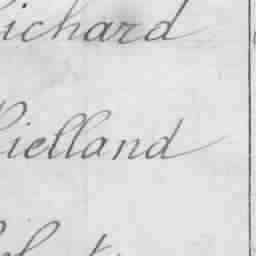 Richard
Kielland